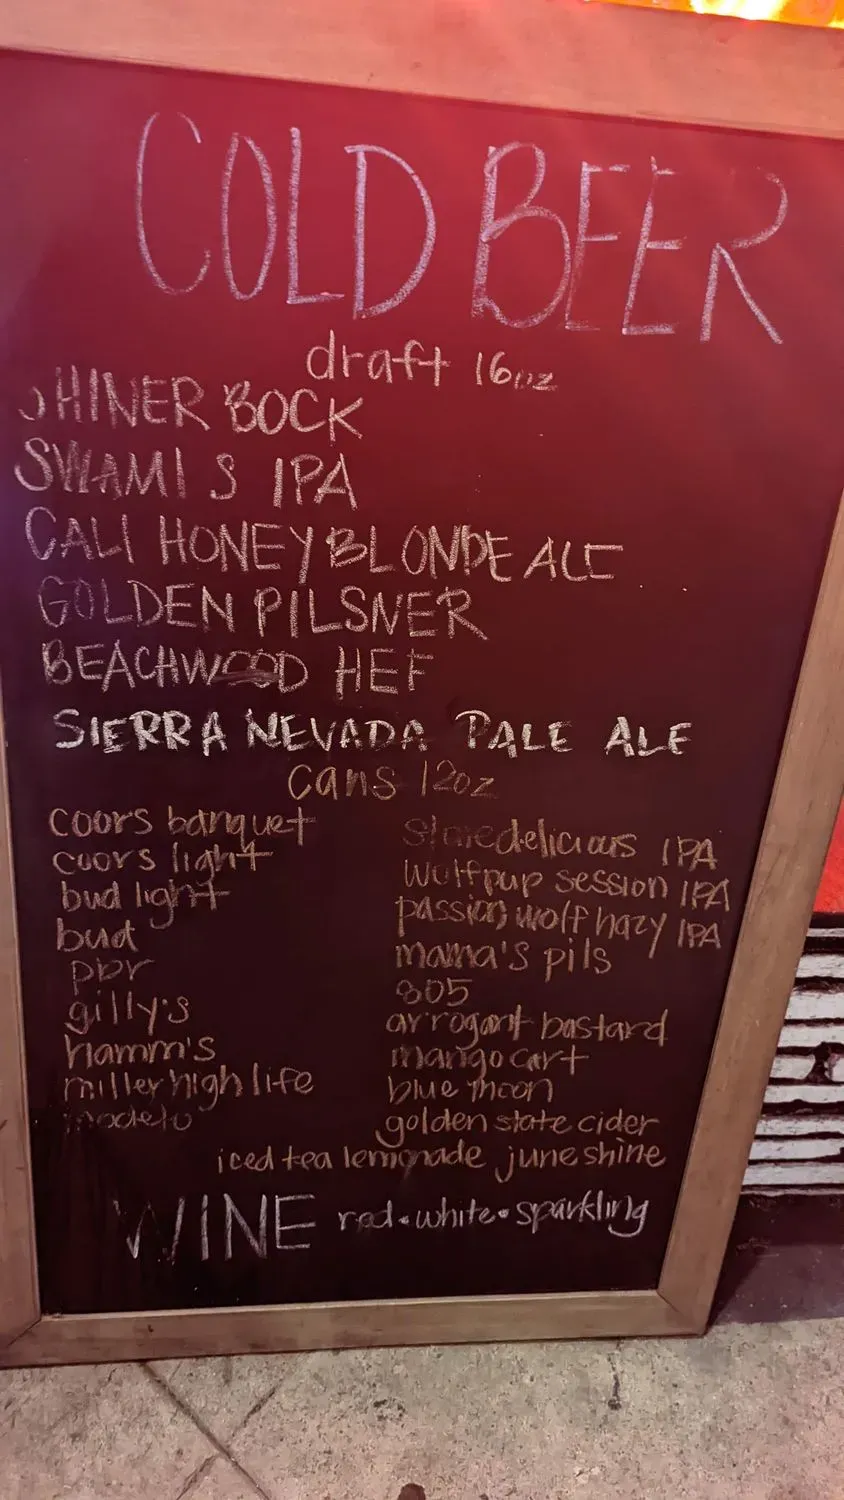 COLD BEER
draft 16oz
SHINER BOCK
SWAMI S IPA
CALI HONEY BLONDE ALE
GOLDEN PILSNER
BEACHWOOD HEF
SIERRA NEVADA PALE ALE
cans 12oz
coors banquet
coors light
bud light
bud
pbr
gilly's
hamm's
miller high life
modelo
stone delicious IPA
wolfpup session IPA
passion wolf hazy IPA
mama's pils
805
arrogant bastard
mango cart
blue moon
golden state cider
iced tea lemonade juneshine
WINE red • white • sparkling